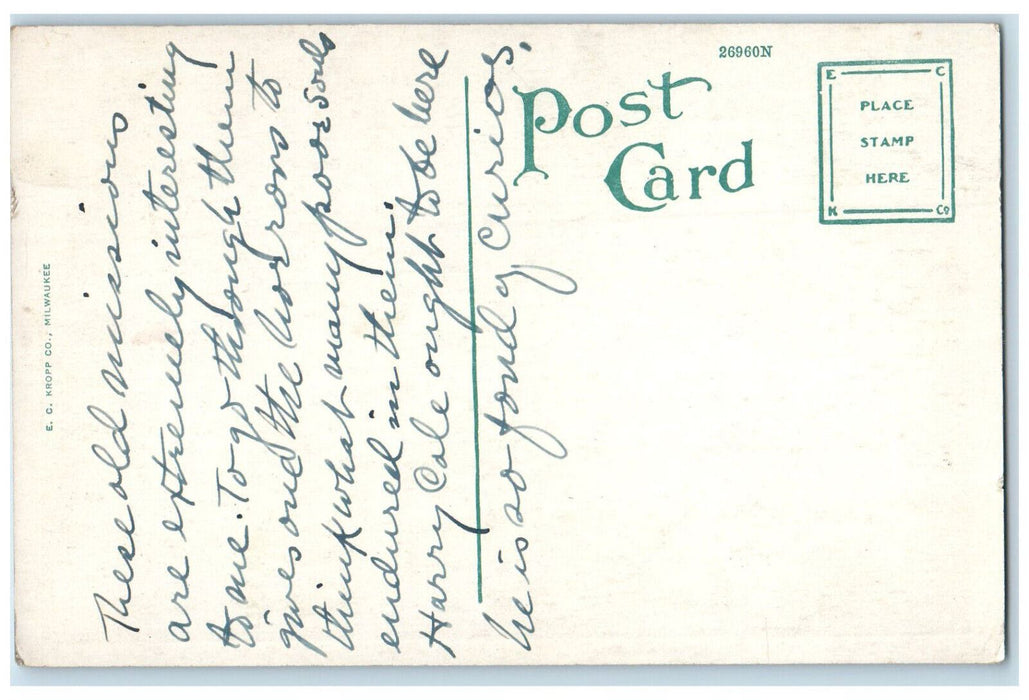 These old missions
are extremely interesting
to me. To go through them
gives one the horrors to
think what many poor souls
endured in them.
Harry Cole ought to be here
he is so fond of Curios.
26960N
Post
Card
E C
PLACE
STAMP
HERE
K Co
E. C. KROPP CO., MILWAUKEE